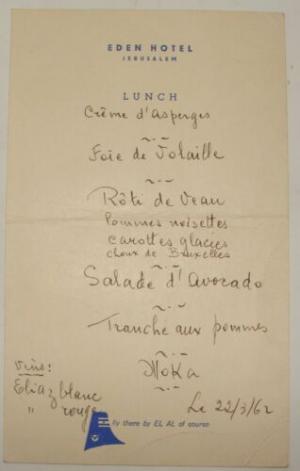 EDEN HOTEL
JERUSALEM
LUNCH
Crème d'Asperges
Foie de Volaille
Rôti de Veau
Pommes noisettes
carottes glacées
choux de Bruxelles
Salade d'Avocado
Tranche aux pommes
Moka
Vins:
Eliaz blanc
" rouge
Le 22/3/62
fly there by EL AL of course